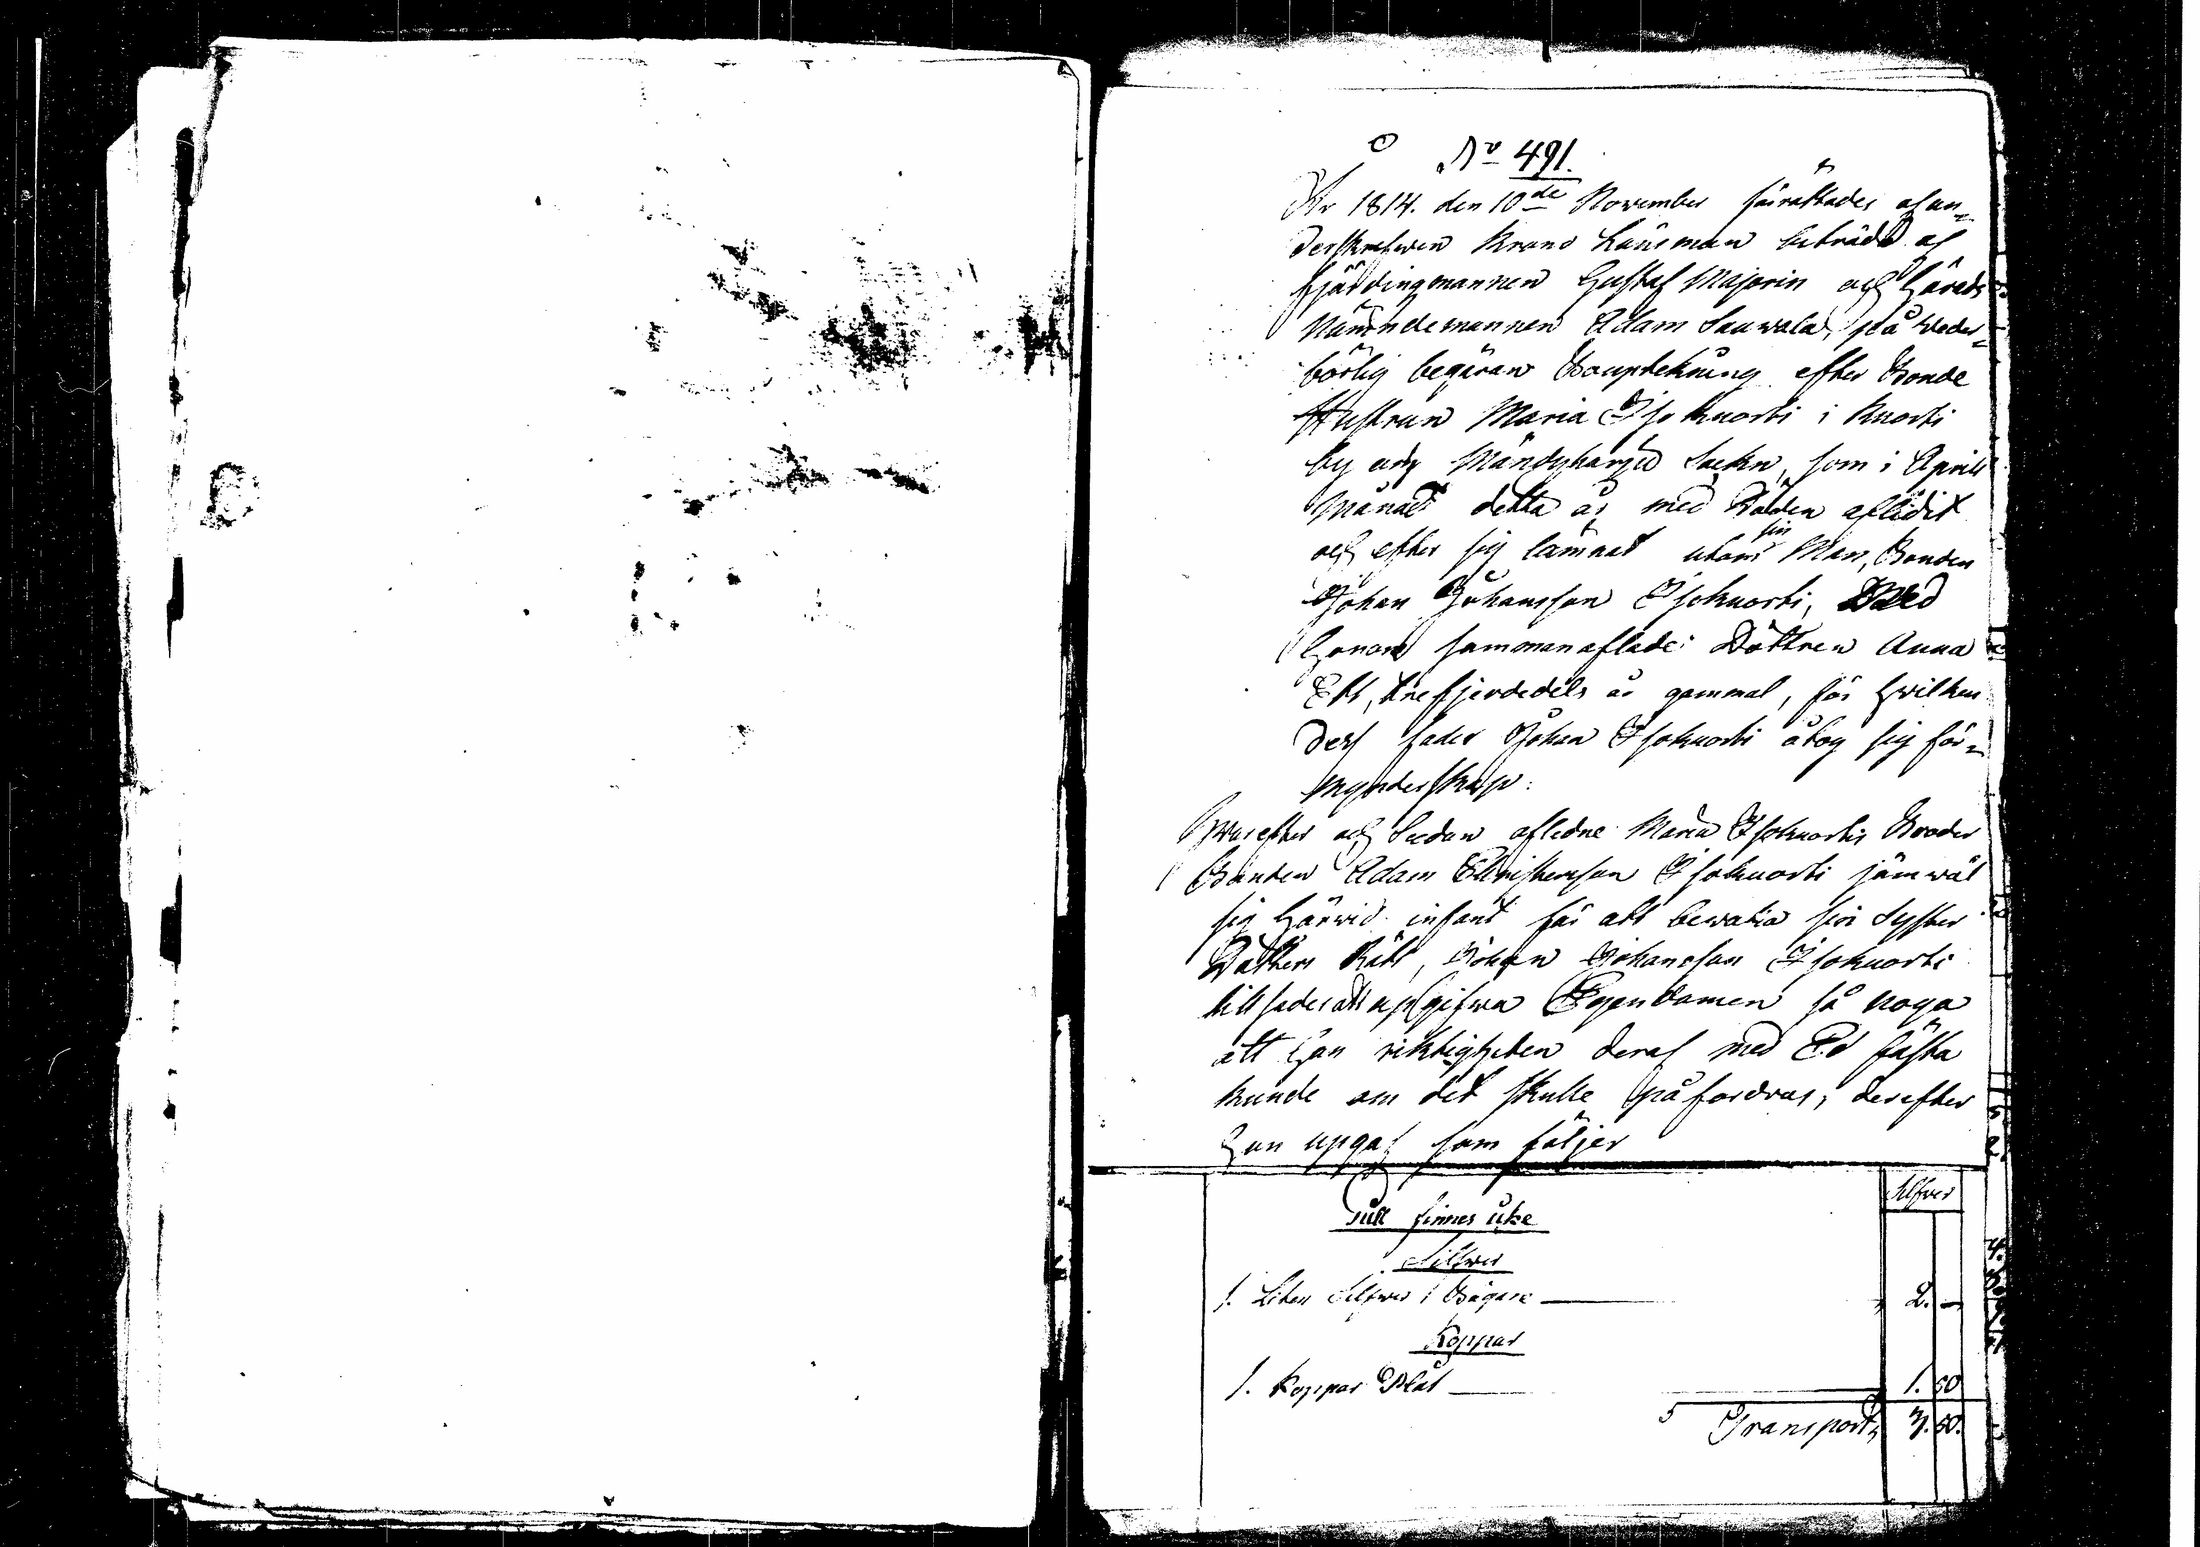 No 491.
År 1814. den 10de November förrättades af un-
derskrefwen Krono Länsman biträdd af
fjärdingmannen Gustaf Majorin och Härads
Nämndemannen Adam Sauwala, på weder-
börlig begäran Bouptekning efter Bonde
Hustrun Maria Isokuorti i Kuorti
by och Mändyharju Sockn, som i Aprill
Månad detta år med döden aflidit
och efter sig lämnat utom sin Man, Bonden
Johan Johansson Isokuorti, Med
honom sammanaflade Dottren Anna
Ett, trefjerdedels år gammal, för hwilken
dess fader Johan Isokuorti åtog sig för-
mynderskap:
Hwarefter och Sedan aflidne Maria Isokuortis Broder
Bonden Adam Christersson Isokuorti jämwäl
sig härwid infant för att bewaka sin Syster
Dotters Rätt, Johan Johansson Isokuorti
tillsades att upgifwa Egendomen så noga
att han riktigheten deraf med Ed fästa
kunde om det skulle påfordras; derefter
han upgaf som följer
Silfver
Gull finnes icke
Silfwer
1. Liten Silfwer Bägare 2. —
Koppar
1. Koppar Plåt 1. 50
Transport 3. 50.